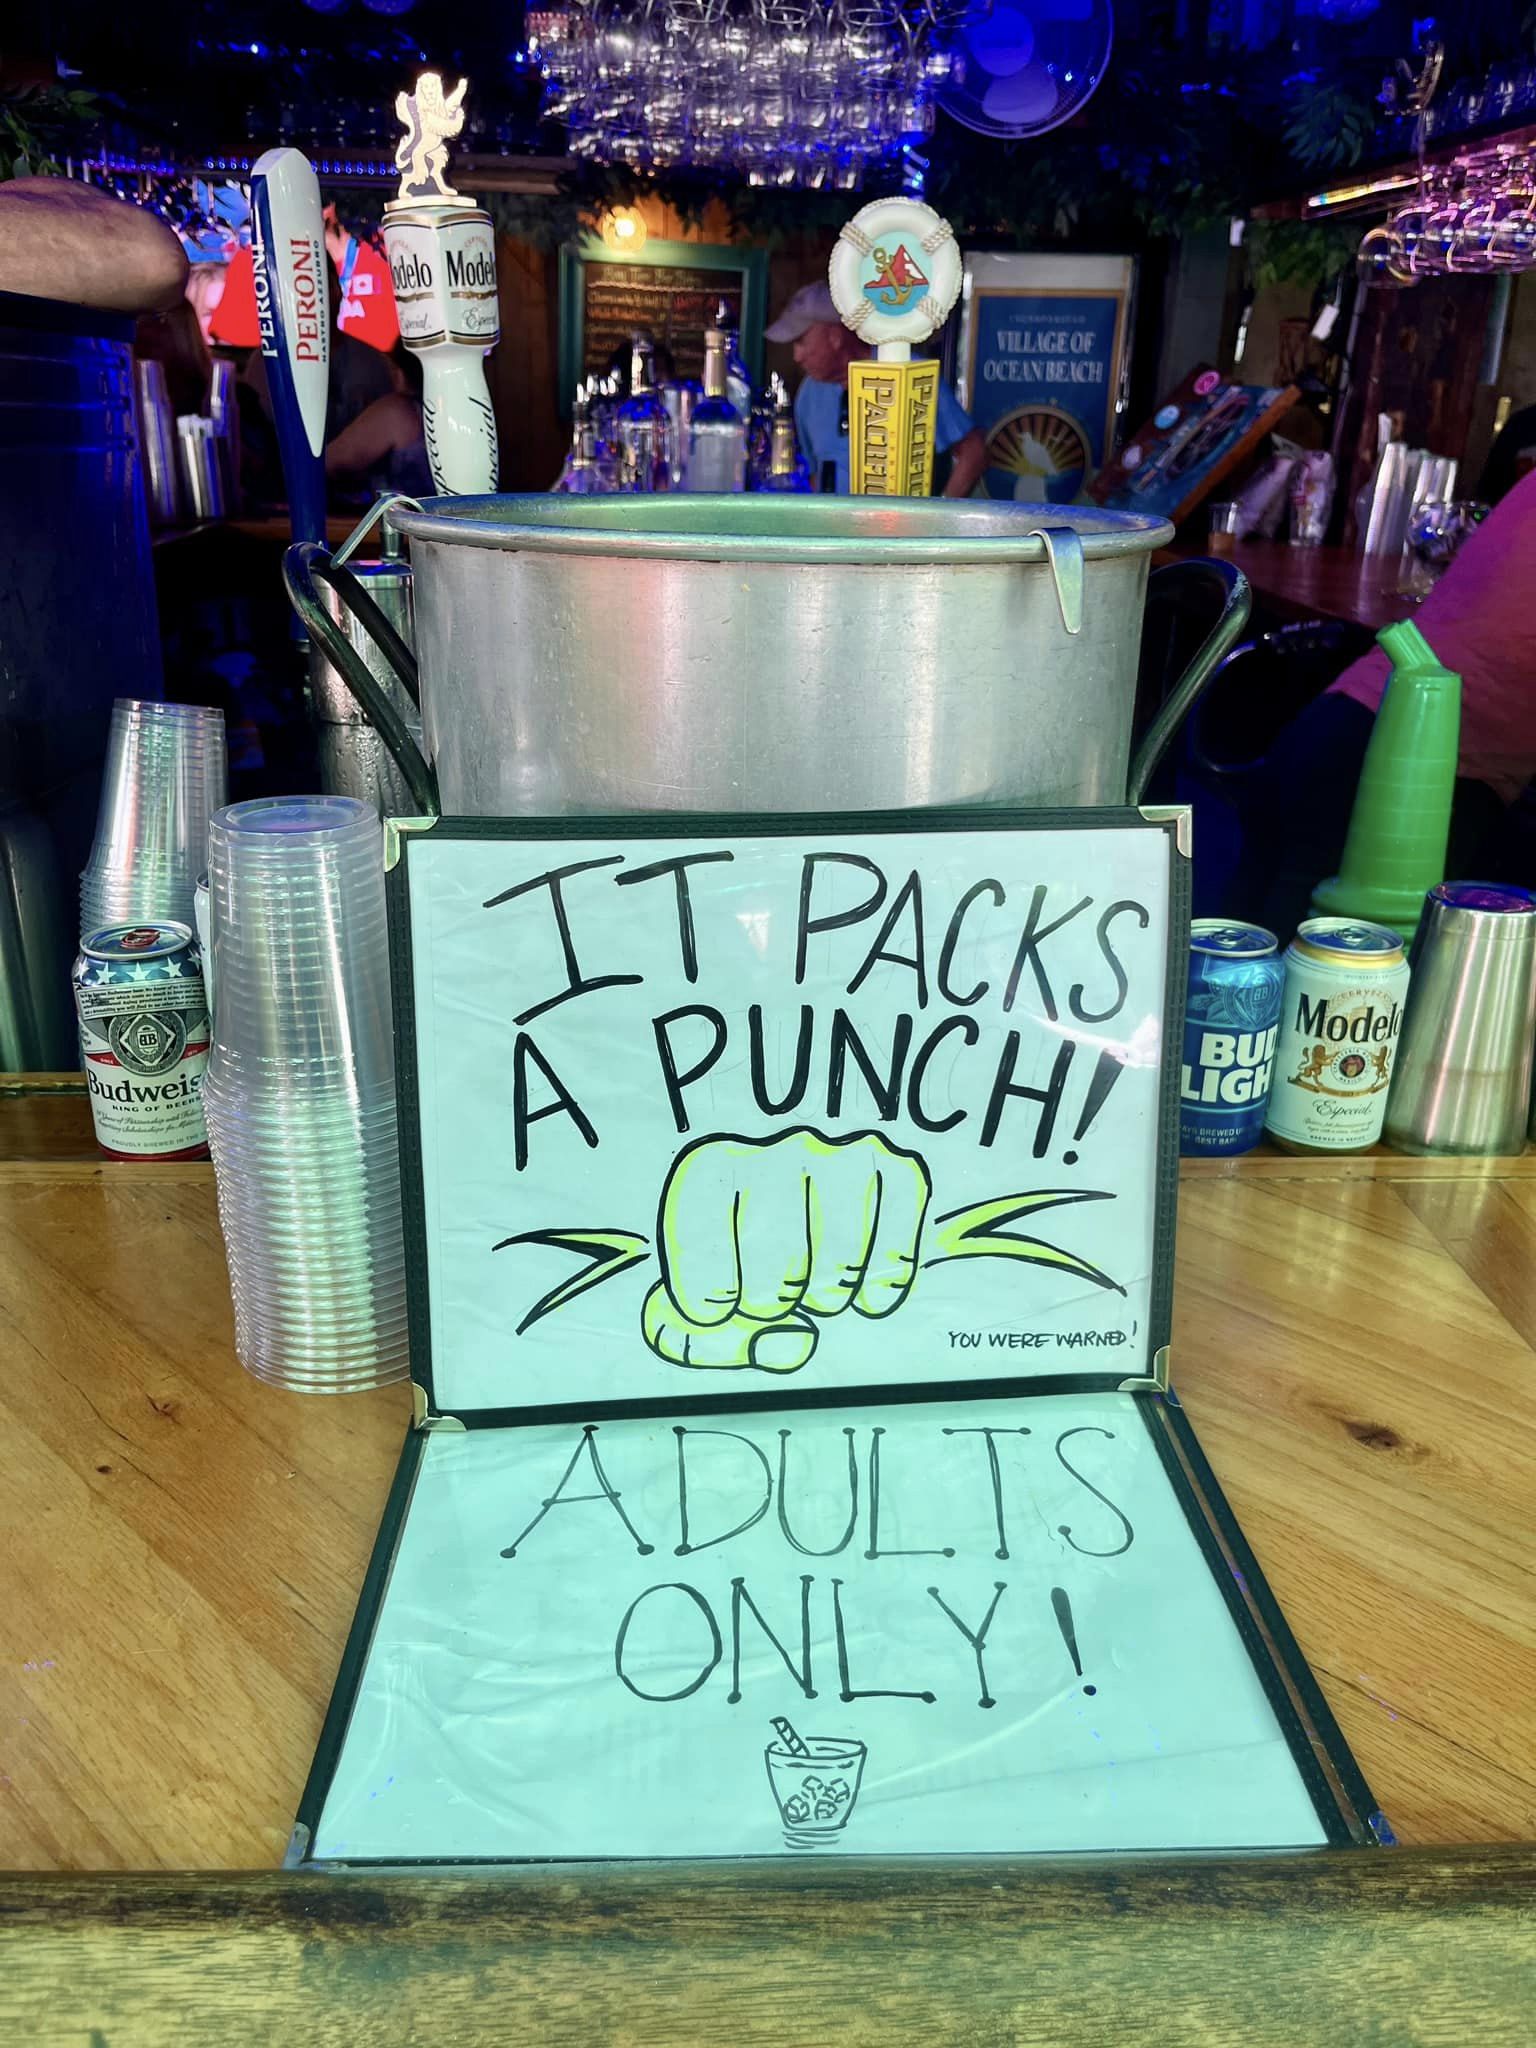 PERONI
PERONI
NASTRO AZZURRO
Modelo
Modelo
Especial
Especial
especial
PACIFICO
PACIFICO
VILLAGE OF
OCEAN BEACH
IT PACKS
A PUNCH!
YOU WERE WARNED!
ADULTS
ONLY!
Budweis
KING OF BEERS
BUD
LIGH
CERVEZA
Modelo
Especial